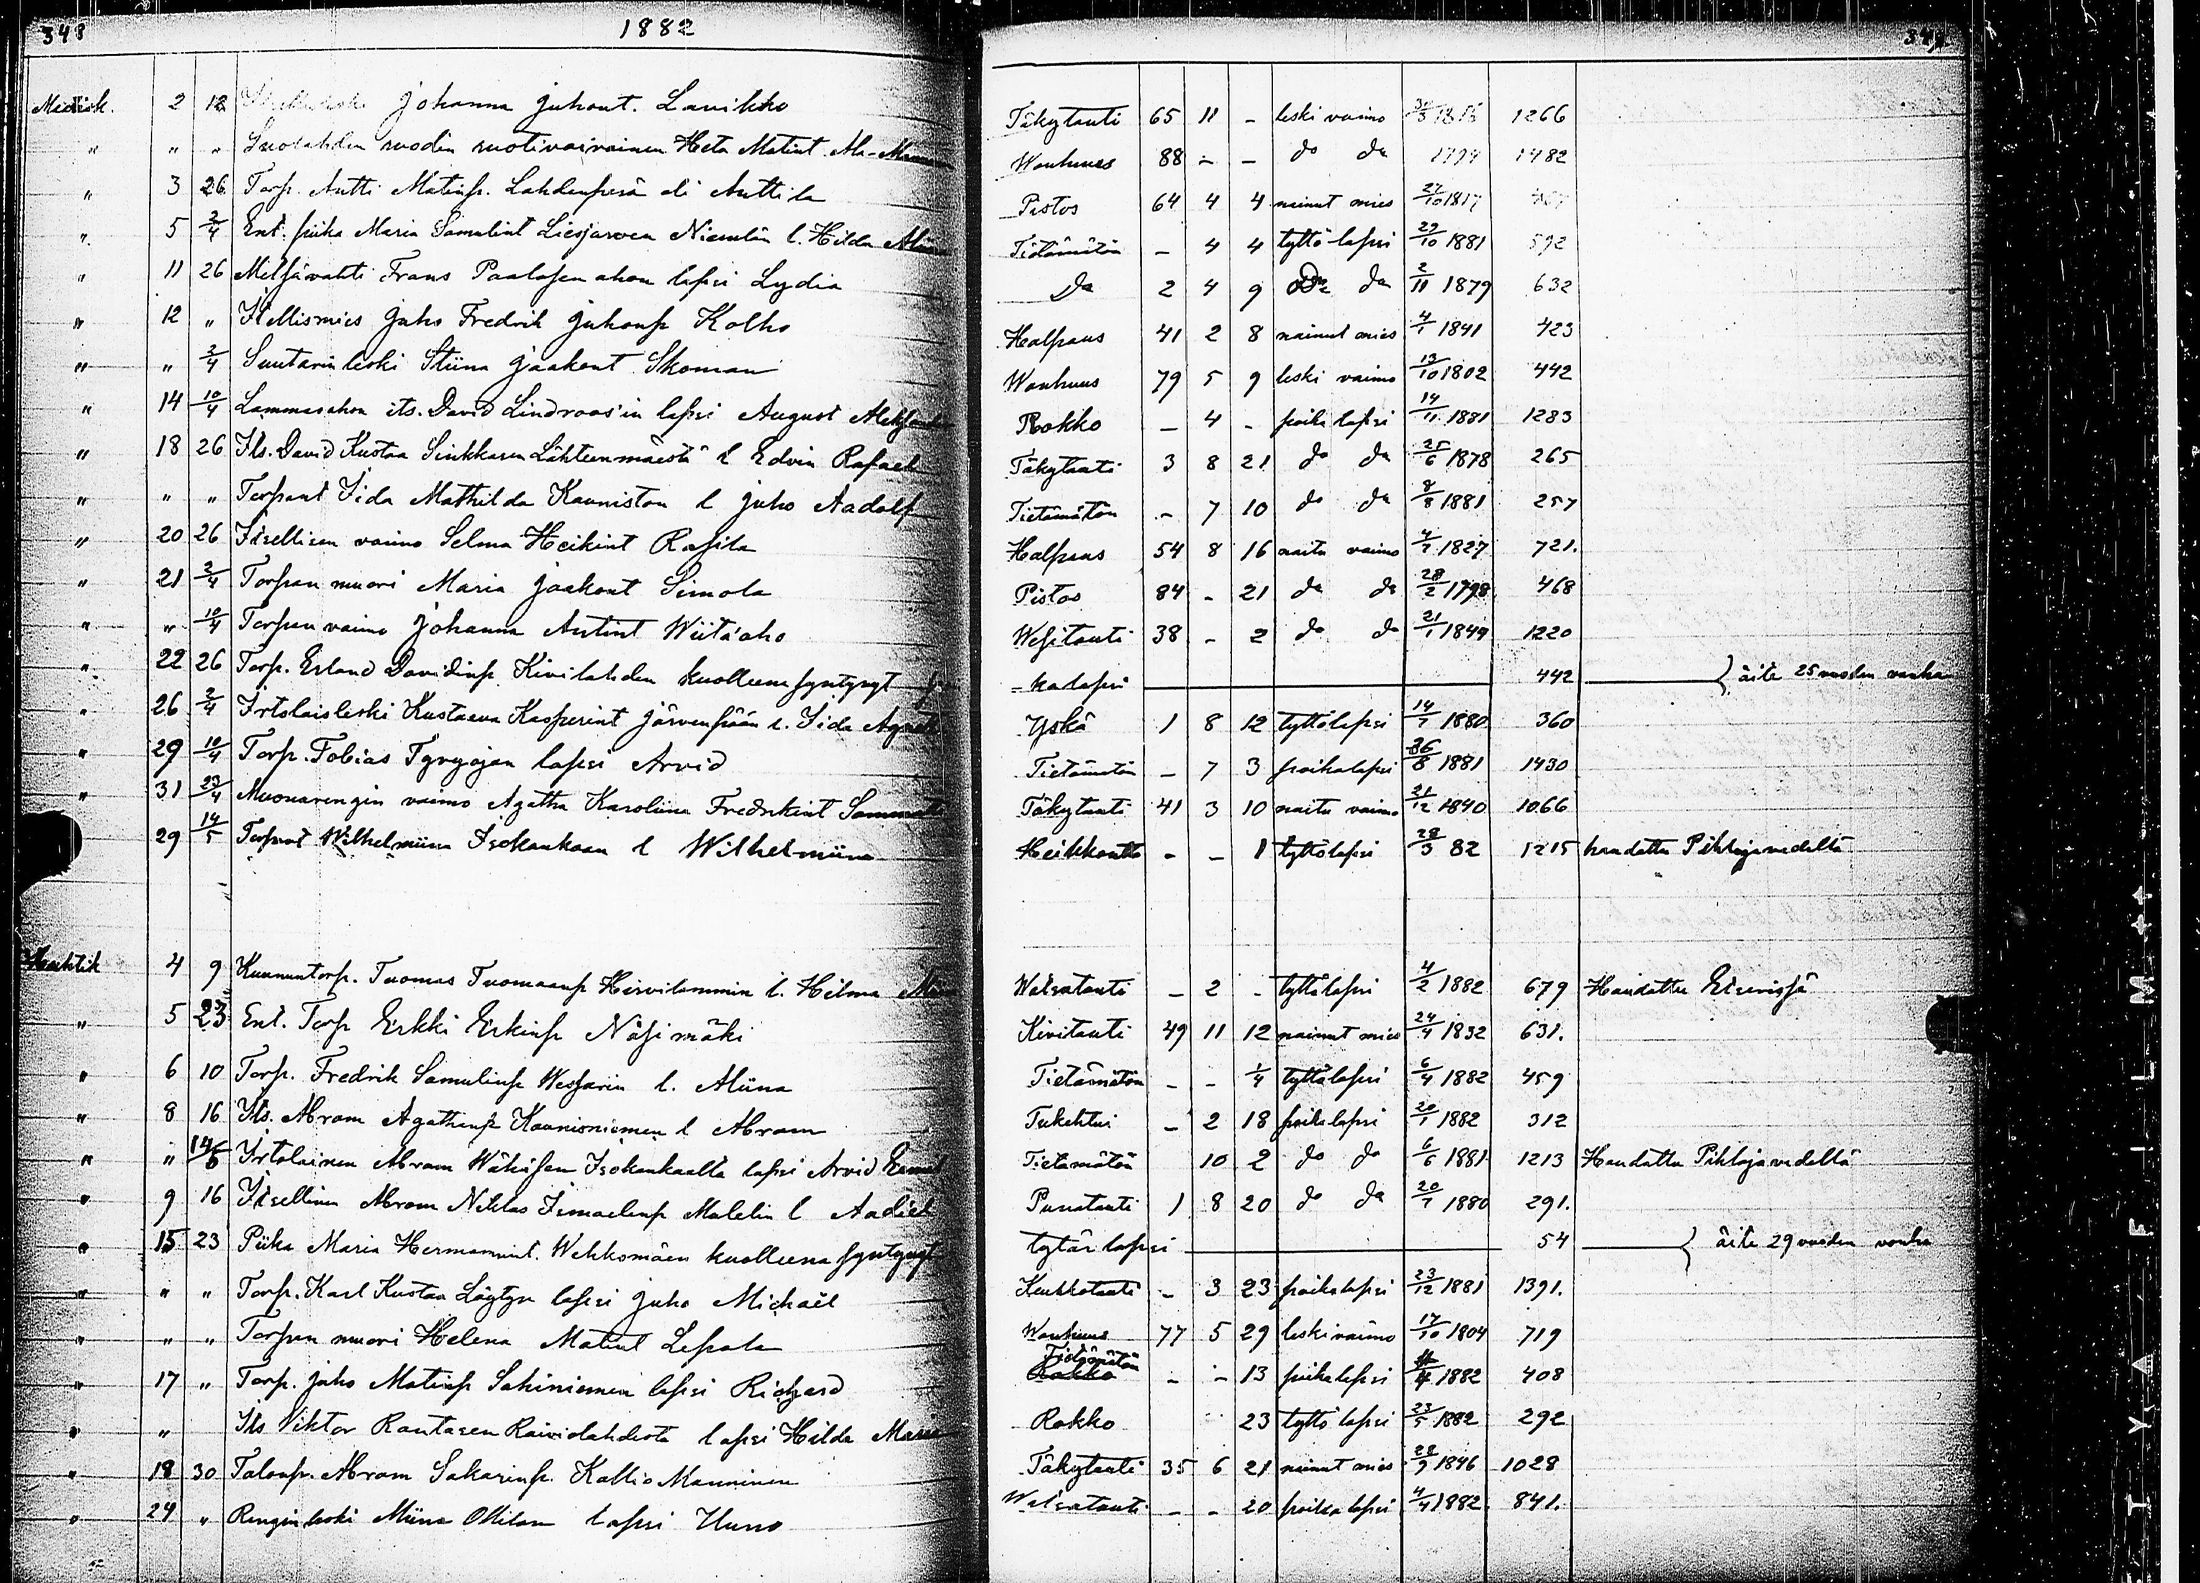 348 1882 349
Maalisk. 2 12 Johanna Juhont. Lavikko Täkytauti 65 11 - leski vaimo 1266
" " " Suolahden ruodin ruotivaivainen Heta Matint. Wanhuus 88 - - do do 1794 1482
" 3 26 Torp. Antti Matinp. Lahdenperä eli Anttila Pistos 64 4 4 nainut mies 27/10 1817
" 5 2/4 Ent. piika Maria Samulint Liesjärven Niemelän l. Hilda Tietämätön - 4 4 tyttö lapsi 29/10 1881 592
" 11 26 Metsävahti Frans Paalasen ahon lapsi Lydia Do 2 4 9 Do do 2/11 1879 632
" 12 " Itellismies Juho Fredrik Juhonp Kolho Halpaus 41 2 8 nainut mies 4/1 1841 423
" " 2/4 Suutarin leski Stiina Jaakont Skoman Wanhuus 79 5 9 leski vaimo 13/10 1802 442
" 14 10/4 Lammasahon its. David Lindroos'in lapsi August Rokko - 4 - poika lapsi 14/11 1881 1283
" 18 26 Its. David Kustaa Sinkkasen Lähteenmäestä l Edvin Rafael Täkytauti 3 8 21 do do 25/6 1878 265
" " " Torparit Iida Mathilda Kauniston l Juho Aadolf Tietämätön - 7 10 do do 8/8 1881 257
" 20 26 Itsellisen vaimo Selma Heikint Rasila Halpaus 54 8 16 naitu vaimo 4/7 1827 721.
" 21 2/4 Torpan muori Maria Jaakont Simola Pistos 84 - 21 do do 28/2 1798 468
" " 10/4 Torpan vaimo Johanna Antint Wiita'aho Wesitauti 38 - 2 do do 21/1 1849 1220
" 22 26 Torp. Erland Davidinp. Kivilahden kuolleena syntynyt - kalapsi 442 } äiti 25 vuoden vanha
" 26 2/4 Irtolaisleski Kustaava Kasperint Järvenpään l. Iida Yskä 1 8 12 tyttölapsi 14/7 1880 360
" 29 10/4 Torp. Tobias Tyryojan lapsi Arvid Tietämätön - 7 3 poikalapsi 26/8 1881 1430
" 31 23/4 Muonarengin vaimo Agatha Karoliina Fredrikint Täkytauti 41 3 10 naitu vaimo 21/12 1840 1066
29 14/5 Wilhelmiina Isokankaan l Wilhelmiina Heikkoutta - - 1 tyttölapsi 28/3 82 1215 haudattu Pihlajavedellä
Huhtik 4 9 Kunnuntorp. Tuomas Tuomaanp Hirvilammin l. Hilma Watsatauti - 2 - tyttölapsi 4/2 1882 679 Haudattu Etserissä
" 5 23 Ent. Torp Erkki Erkinp Näsimäki Kivitauti 49 11 12 nainut mies 24/4 1832 631.
" 6 10 Torp. Fredrik Samulinp Wesparin l. Aliina Tietämätön - - 1/4 tyttölapsi 6/4 1882 459
" 8 16 Its. Abram Agathanp Kaunisniemen l Abram Tukehtui - 2 18 poikalapsi 20/1 1882 312
" " 14/5 Irtolainen Abram Wähäsen Isokankaalta lapsi Arvid Tietämätön 10 2 do do 6/6 1881 1213 Haudattu Pihlajavedellä
" 9 16 Itsellinen Abram Niklas Ismaelinp Malelin l Punatauti 1 8 20 do do 20/7 1880 291.
" 15 23 Piika Maria Hermannint. Wehkomäen kuolleena syntynyt tytär lapsi 54 } äiti 29 vuoden vanha
" " " Torp. Karl Kustaa Löytyn lapsi Juho Michaël Keuhkotauti - 3 23 poikalapsi 23/12 1881 1391.
" " " Torpan muori Helena Matint Lepola Wanhuus 77 5 29 leskivaimo 17/10 1804 719
" 17 " Torp. Juho Matinp Sahiniemen lapsi Richard Tietämätön Rokko - - 13 poikalapsi 4/4 1882 408
" " Its Viktor Rantasen Raiviolahdesta lapsi Hilda Maria Rokko 23 tyttö lapsi 23/5 1882 292
" 18 30 Talonp. Abram Sakarinp. Kallio Manninen Täkytauti 35 6 21 nainut mies 28/9 1846 1028
" 24 " Rengin leski Miina Ollilan lapsi Uuno Watsatauti - - 20 poika lapsi 4/4 1882 841.
FILM